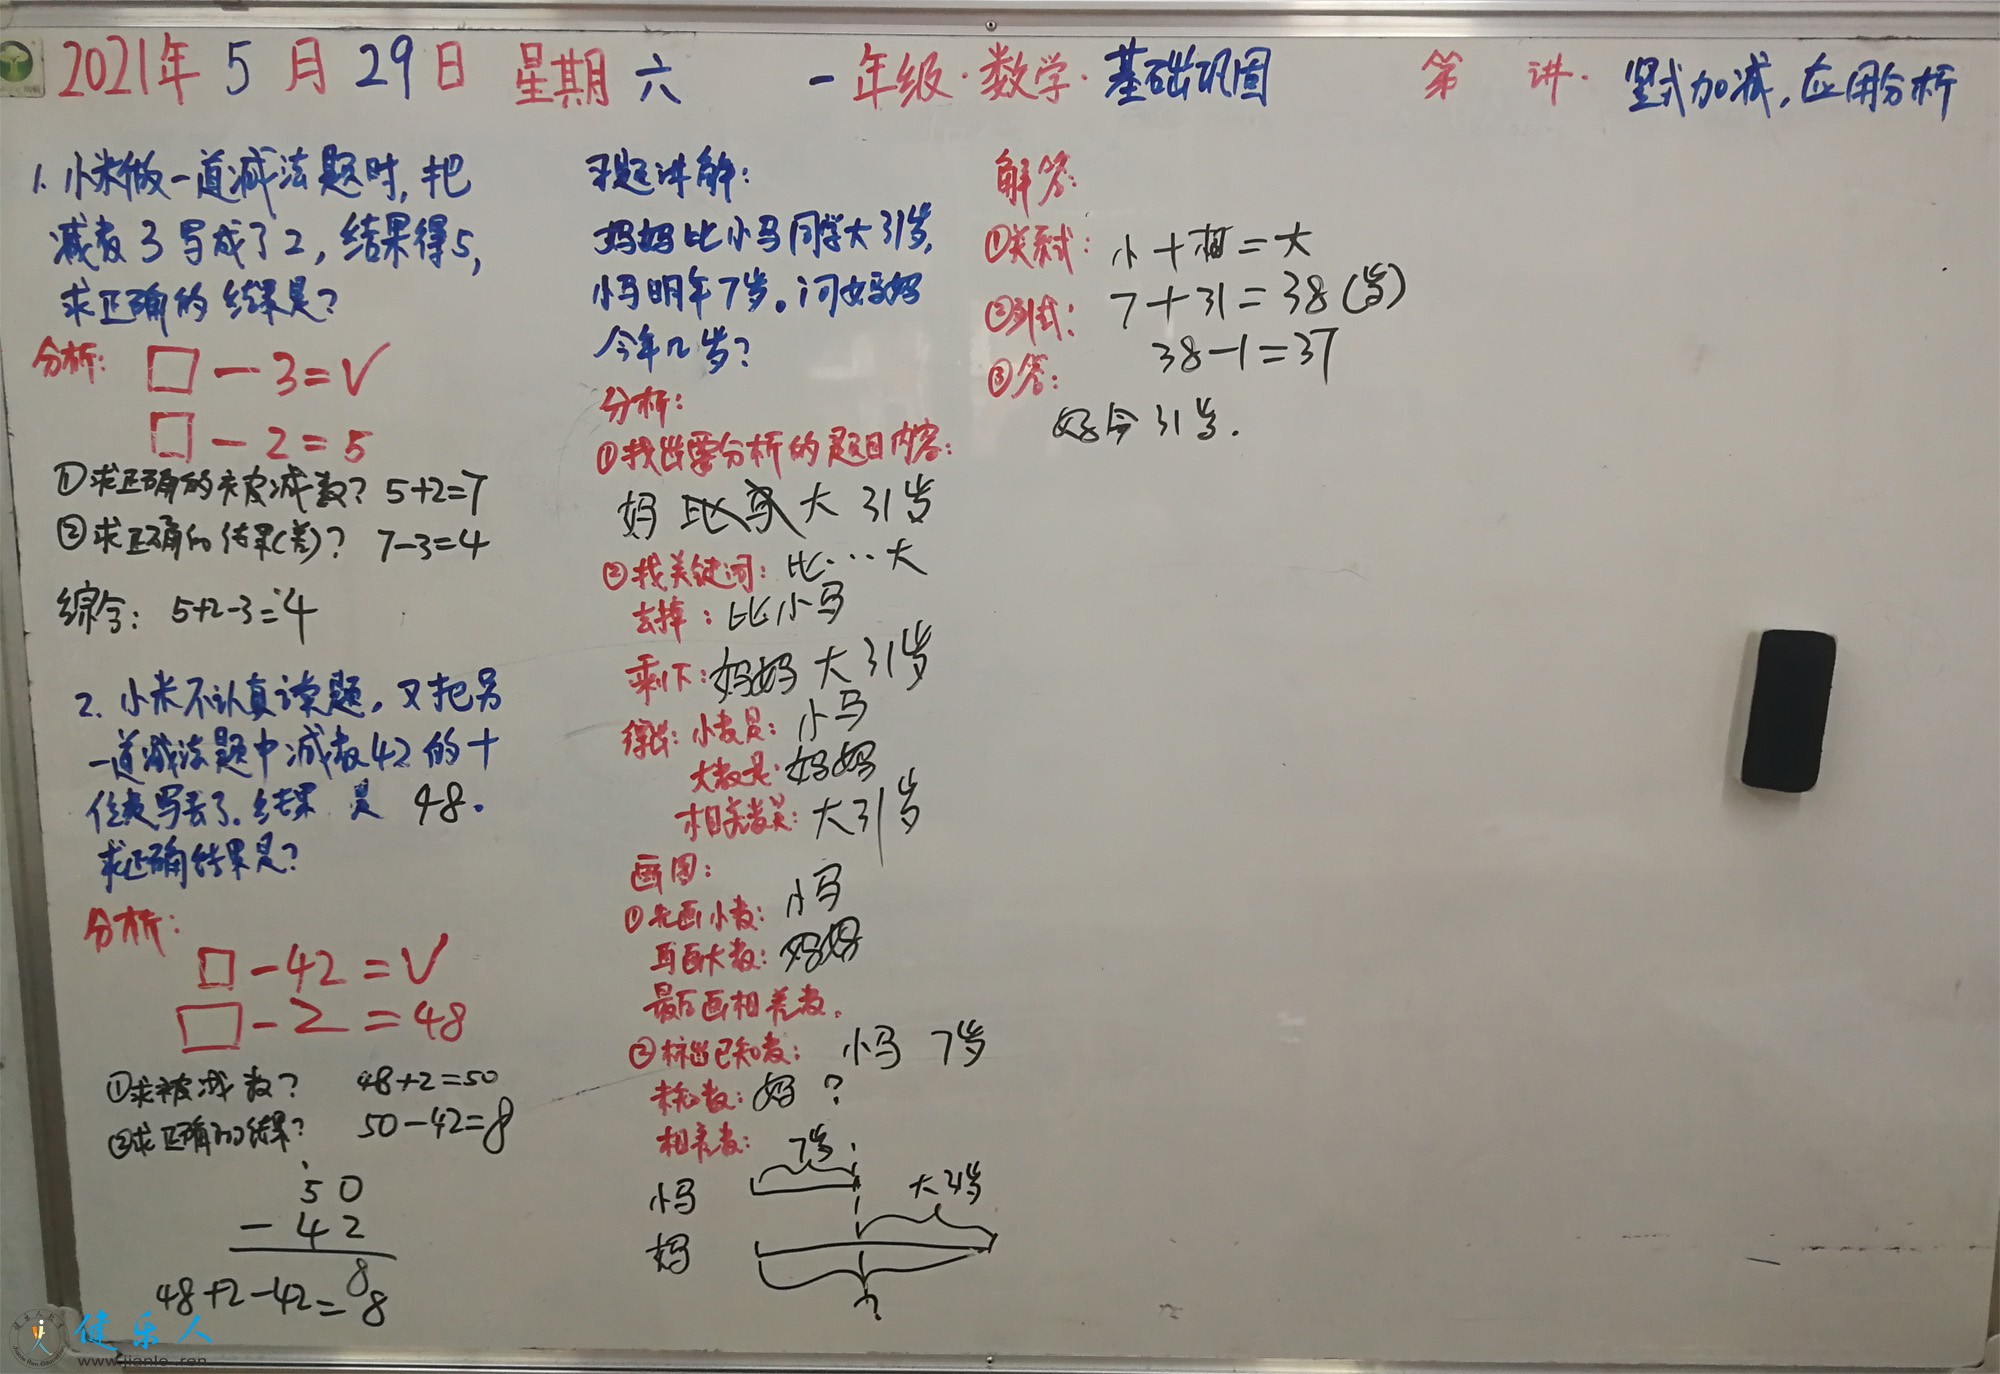 2021年 5 月 29日 星期 六 一年级·数学·基础巩固 第 讲· 竖式加减,应用分析
1. 小米做一道减法题时,把
减数3写成了2,结果得5,
求正确的结果是?
分析:
□-3=√
□-2=5
①求正确的被减数? 5+2=7
②求正确的结果(差)? 7-3=4
综合: 5+2-3=4
2. 小米不认真读题,又把另
一道减法题中减数42的十
位数写丢了.结果 是 48.
求正确结果是?
分析:
□-42=√
□-2=48
①求被减数? 48+2=50
②求正确的结果? 50-42=8
50
-42
8
48+2-42=8
习题讲解:
妈妈比小马同学大31岁,
小马明年7岁。问妈妈
今年几岁?
分析:
①找出要分析的题目内容:
妈比马大31岁
②找关键词: 比…大
去掉: 比小马
剩下: 妈妈大31岁
得出: 小数是: 小马
大数是: 妈妈
相差数是: 大31岁
画图:
①先画小数: 小马
再画大数: 妈妈
最后画相差数.
②标出已知数: 小马 7岁
未知数: 妈 ?
相差数:
7岁
小马
大31岁
妈
?
解答:
①关系式: 小+相=大
②列式: 7+31=38(岁)
38-1=37
③答:
妈今31岁.
健乐人
www.jianle.ren